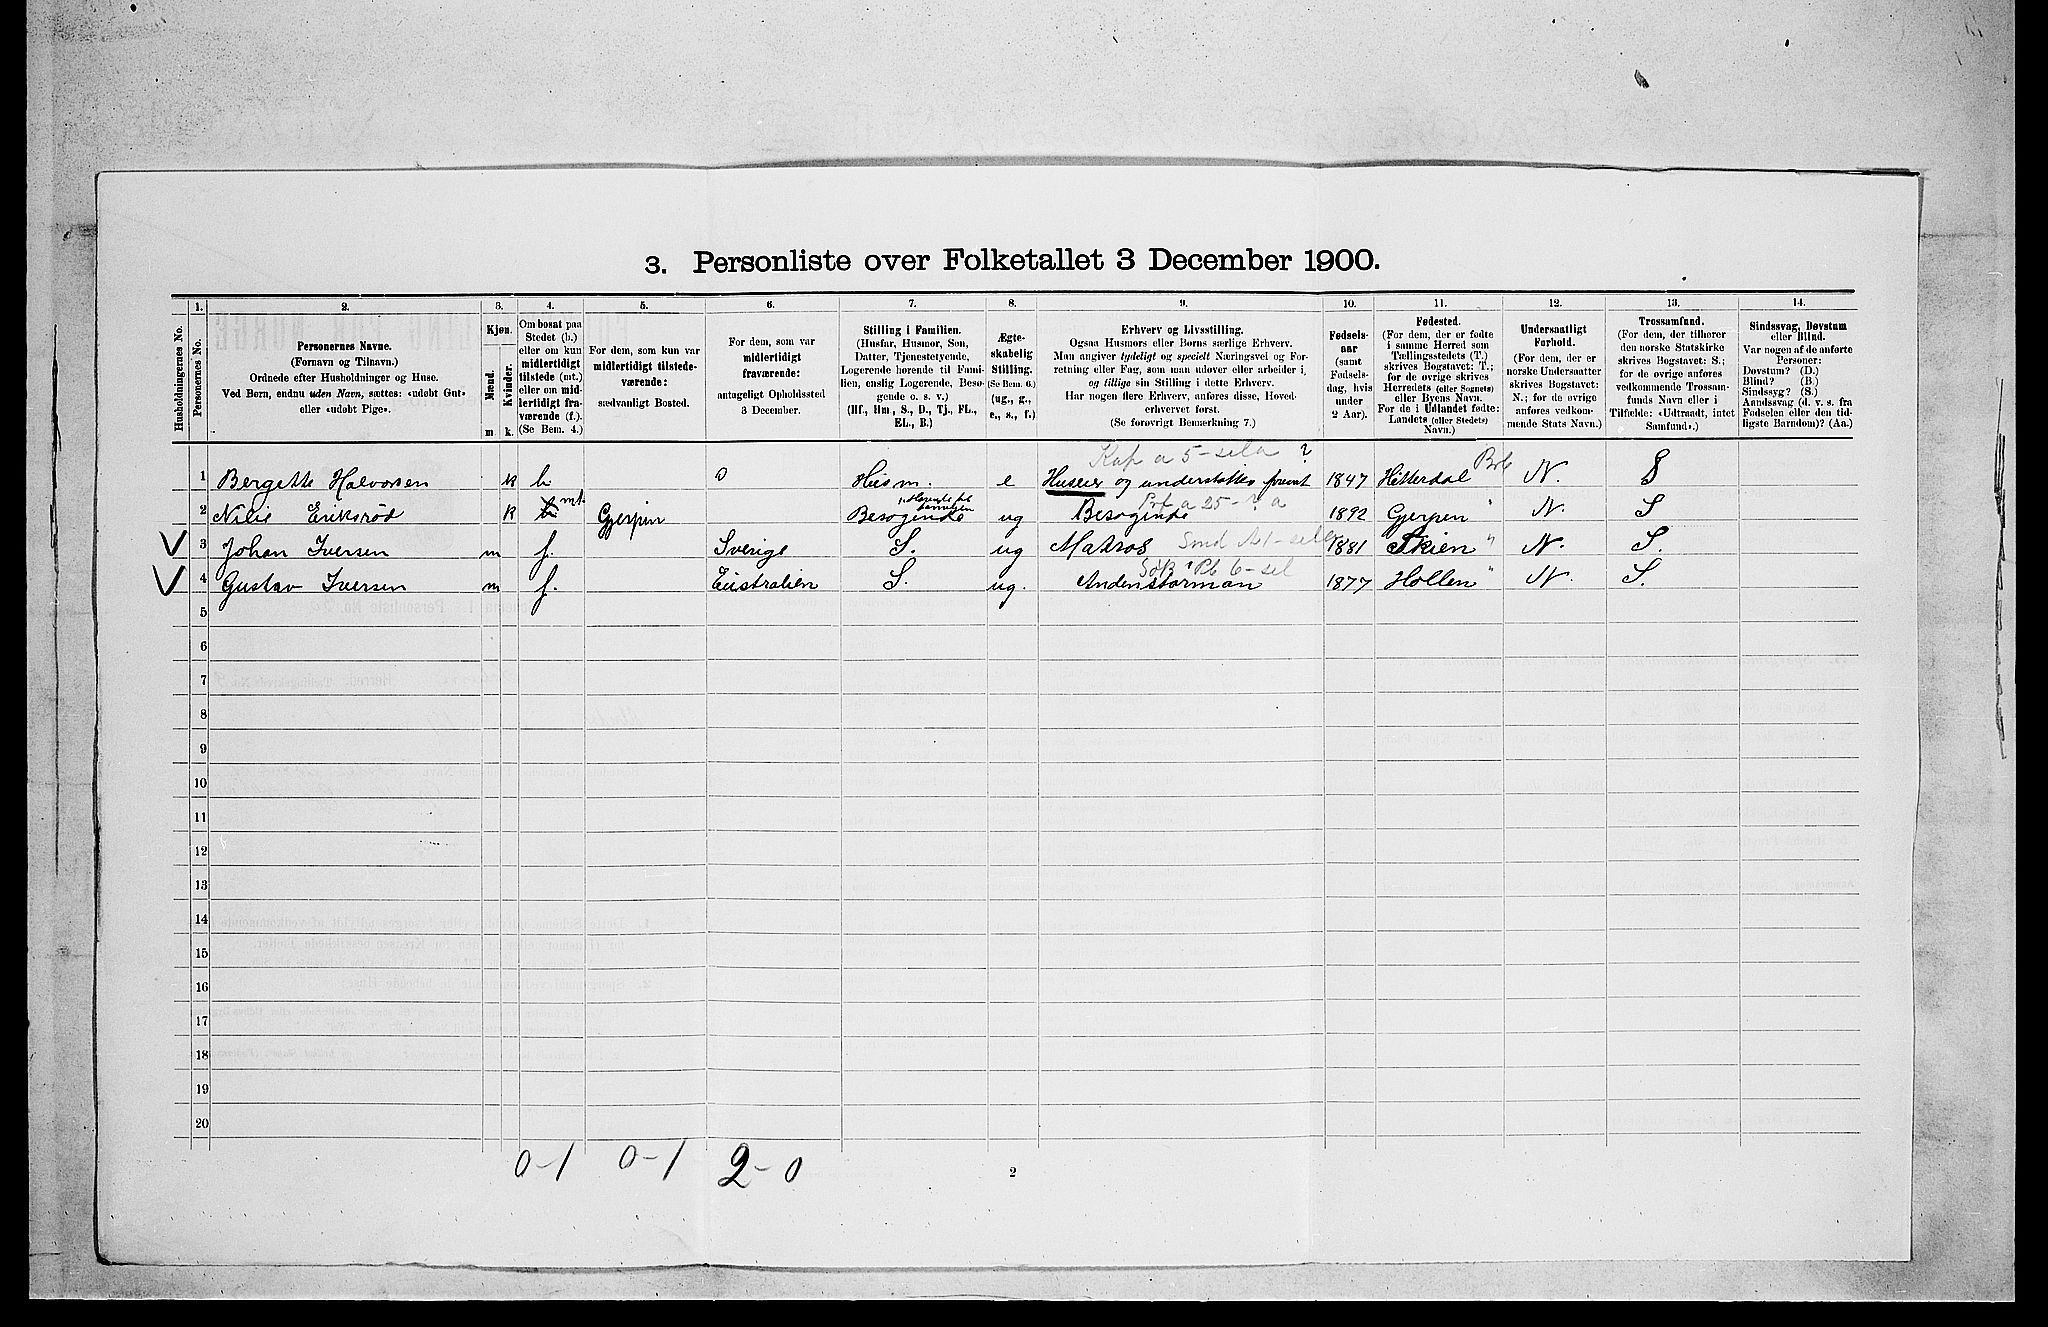 3. Personliste over Folketallet 3 December 1900.
1. 2. 3. 4. 5. 6. 7. 8. 9. 10. 11. 12. 13. 14.
Husholdningernes No.
Personernes No.
Personernes Navne.
(Fornavn og Tilnavn.)
Ordnede efter Husholdninger og Huse.
Ved Børn, endnu uden Navn, sættes: «udøbt Gut»
eller «udøbt Pige».
Kjøn.
Mænd.
Kvinder.
m. k.
Om bosat paa
Stedet (b.)
eller om kun
midlertidigt
tilstede (mt.)
eller om mid-
lertidigt fra-
værende (f.).
(Se Bem. 4.)
For dem, som kun var
midlertidigt tilstede-
værende:
sædvanligt Bosted.
For dem, som var
midlertidigt
fraværende:
antageligt Opholdssted
3 December.
Stilling i Familien.
(Husfar, Husmor, Søn,
Datter, Tjenestetyende,
Logerende hørende til Fami-
lien, enslig Logerende, Besø-
gende o. s. v.)
(Hf., Hm., S., D., Tj., FL.,
EL., B.)
Ægte-
skabelig
Stilling.
(Se Bem. 6.)
(ug., g.,
e., s., f.)
Erhverv og Livsstilling.
Ogsaa Husmors eller Børns særlige Erhverv.
Man angiver tydeligt og specielt Næringsvei og For-
retning eller Fag, som man udøver eller arbeider i,
og tillige sin Stilling i dette Erhverv.
Har nogen flere Erhverv, anføres disse, Hoved-
erhvervet først.
(Se forøvrigt Bemerkning 7.)
Fødsels-
aar
(samt
Fødsels-
dag, hvis
under
2 Aar).
Fødested.
(For dem, der er fødte
i samme Herred som
Tællingsstedets (T.)
skrives Bogstavet: T.;
for de øvrige skrives
Herredets (eller Sognets)
eller Byens Navn.
For de i Udlandet fødte:
Landets (eller Stedets)
Navn.)
Undersaatligt
Forhold.
(For dem, der er
norske Undersaatter
skrives Bogstavet:
N.; for de øvrige
anføres vedkom-
mende Stats Navn.)
Trossamfund.
(For dem, der tilhører
den norske Statskirke
skrives Bogstavet: S.;
for de øvrige anføres
vedkommende Trossam-
funds Navn eller i
Tilfælde: «Udtraadt, intet
Samfund».)
Sindssvag, Døvstum
eller Blind.
Var nogen af de anførte
Personer:
Døvstum? (D.)
Blind? (B.)
Sindssyg? (S.)
Aandssvag (d. v. s. fra
Fødselen eller den tid-
ligste Barndom)? (Aa.)
1 Bergette Halvorsen k b Husm. e Huseier og understøttes 1847 Hitterdal N. S
2 Erikrød k mt Gjerpen Besøgende ug Besøgende 1892 Gjerpen " N. S
3 Johan Iversen m f. Sverige S. ug Matros 1881 Skien " N. S.
4 Gustav Iversen m f. Eustralien S. ug. Andenstørman 1877 Hollen " N. S.
5
6
7
8
9
10
11
12
13
14
15
16
17
18
19
20
0-1 0-1 2-0 2